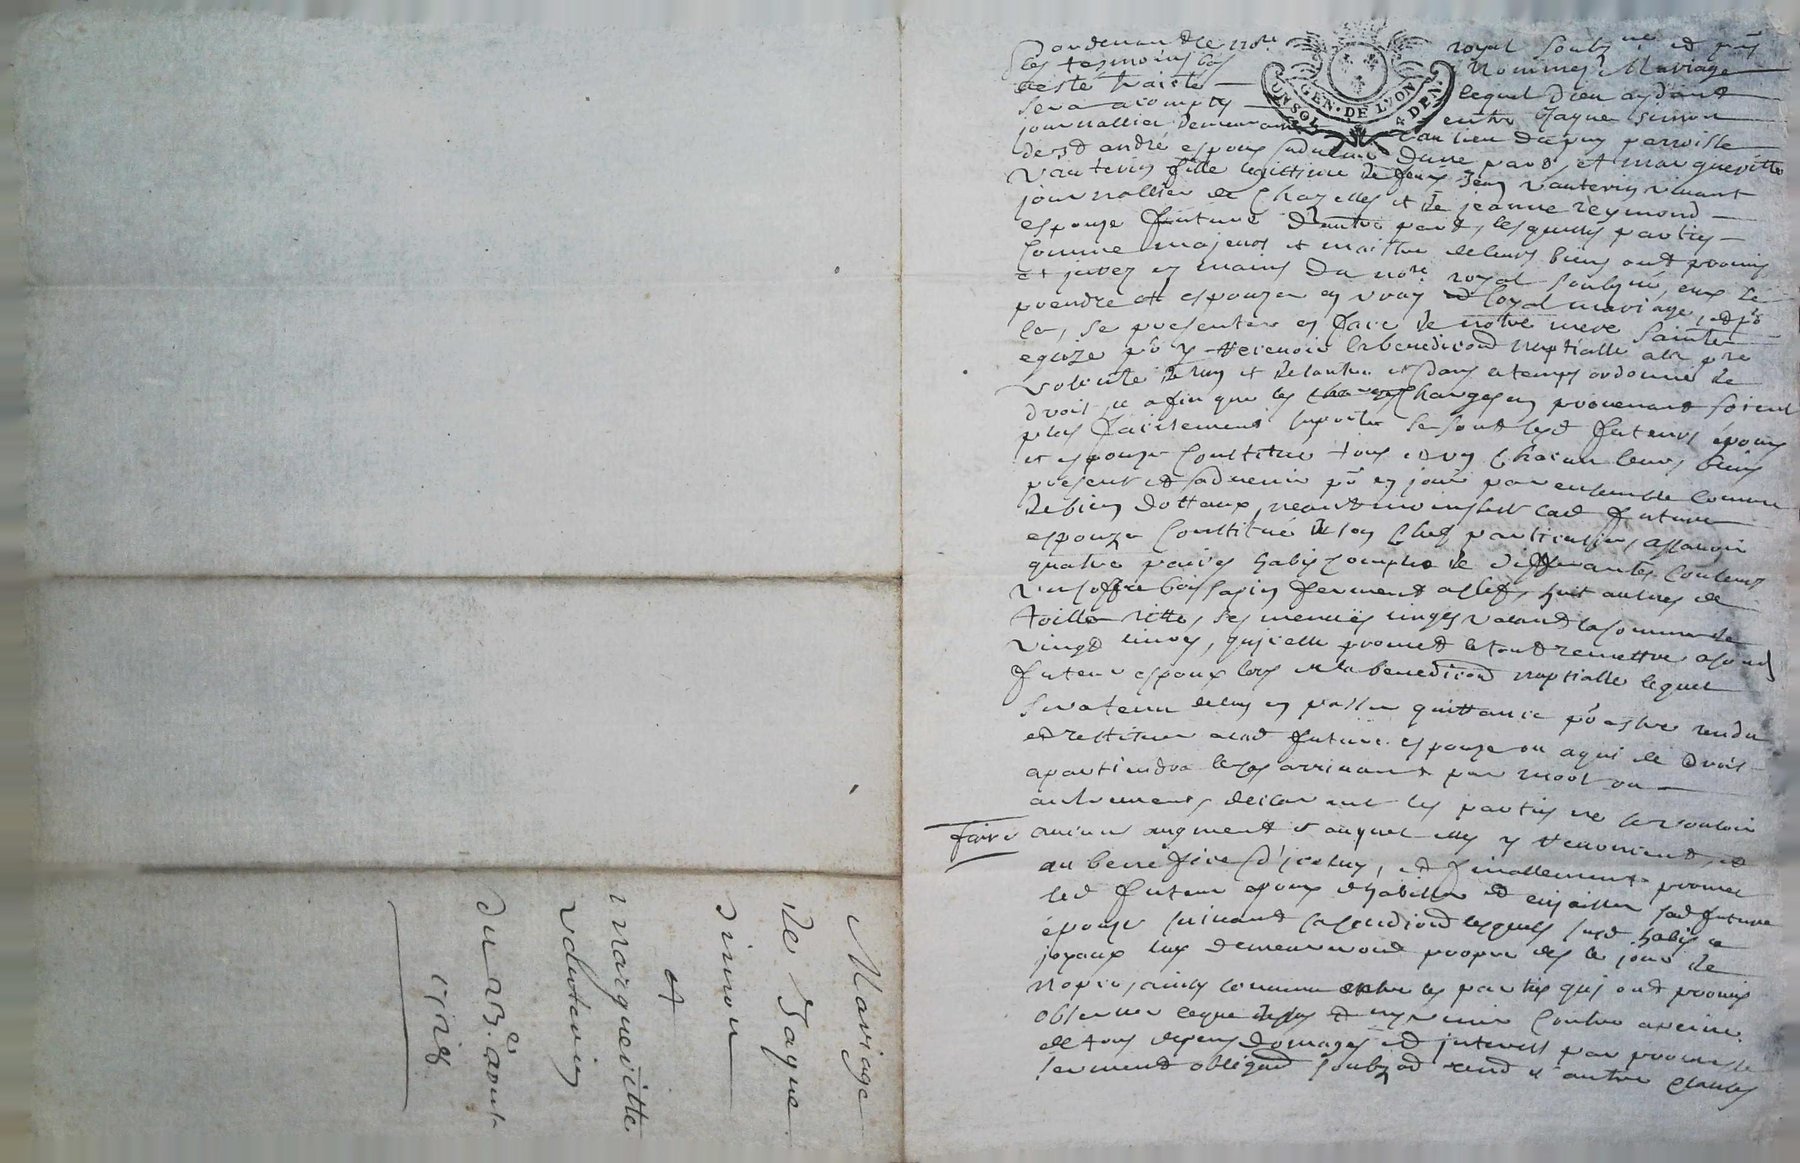 Pardevant le nore royal soubzné et pnts
les tesmoins bas nommés Mariage
a esté traité lequel Dieu aydant
sera acomply entre Jaque simon
journallier demeurant au lieu
de st andré espoux advenir d'une part, et margueritte
vauterin fille legittime de feux Jean vauterin vivant
journallier de Chazelles et de jeanne reymond
espouze future d'autre part, lesquelles parties
comme majeurs et maistre de leurs biens ont promis
et jurez es mains du nore royal soubzné, eux
prendre et espouzer en vray et loyal mariage, et po
ce, se presenter en face de notre mere sainte
eglize po y recevoir la benediction nuptialle a la pre
volonté de l'un et de l'autre et dans le temps ordonné de
droit, et afin que les charges en provenant soient
plus facilement suportés se sont lesd futeurs époux
et espouze constitué tous et un chacun leurs biens
present et advenir po en jouir par ensemble comme
de biens dottaux, neantmoins lad future
espouze constitue de son chef particulier, assavoir
quatre paires habis complet de differantes couleurs
un coffre bois sapin fermant a clef, huit aulnes de
toille ritte, ses menues linges valant la somme de
vingt livres, qu'icelle promet le tout remettre a sond
futeur espoux lors de la benediction nuptialle lequel
sera tenu de luy en passer quittance po estre rendu
et restituer a lad future espouze ou a qui de droit
apartiendra le cas arrivant par mort ou
autrement, declarant les parties ne le vouloir
faire aucun augment auquel elles y renoncent, et
au benefice d'iceluy, et finallement promet
led futeur epoux d'habiller et enjailler sad future
épouze suivant sa condition lesquels susd habis et
joyaux luy demeureront propre des le jour de
nopces, ainsy convenu entre les parties qui ont promis
observer ce que dessus et n'y venir contre a peine
de tous depens domages et interest par promesse
serment obligaon soubzon renon et autre clauses
Mariage
de Jaque
Simon
et
margueritte
vauterin
du 23e aout
1728
GEN · DE LYON
UN SOL 4 DEN